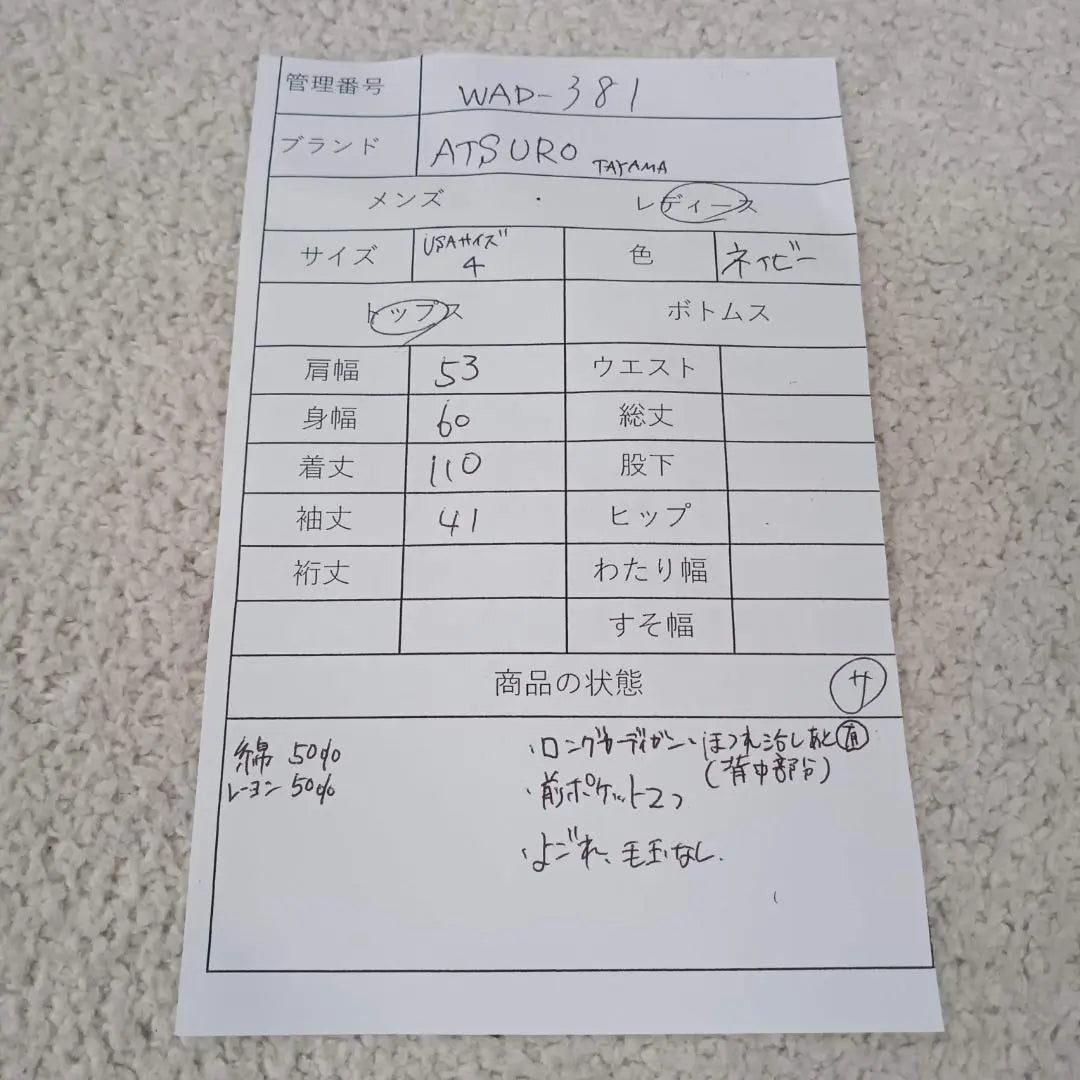 管理番号 WAD-381
ブランド ATSURO TAYAMA
メンズ ・ レディース
サイズ USAサイズ 4 色 ネイビー
トップス ボトムス
肩幅 53 ウエスト
身幅 60 総丈
着丈 110 股下
袖丈 41 ヒップ
裄丈 わたり幅
すそ幅
商品の状態 サ
綿 50%
レーヨン 50%
・ロングカーディガン
・ほつれ治しあと有
(背中部分)
・前ポケット2つ
・よごれ、毛玉なし.